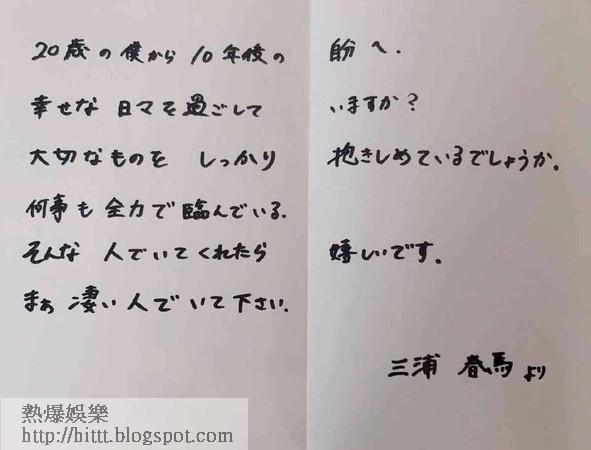 20歳の僕から10年後の 自分へ.
幸せな日々を過ごして いますか?
大切なものを しっかり 抱きしめているでしょうか。
何事も全力で臨んでいる.
そんな 人でいてくれたら 嬉しいです。
まぁ 凄い人でいて下さい.
三浦 春馬 より
熱爆娛樂
http://bittt.blogspot.com/